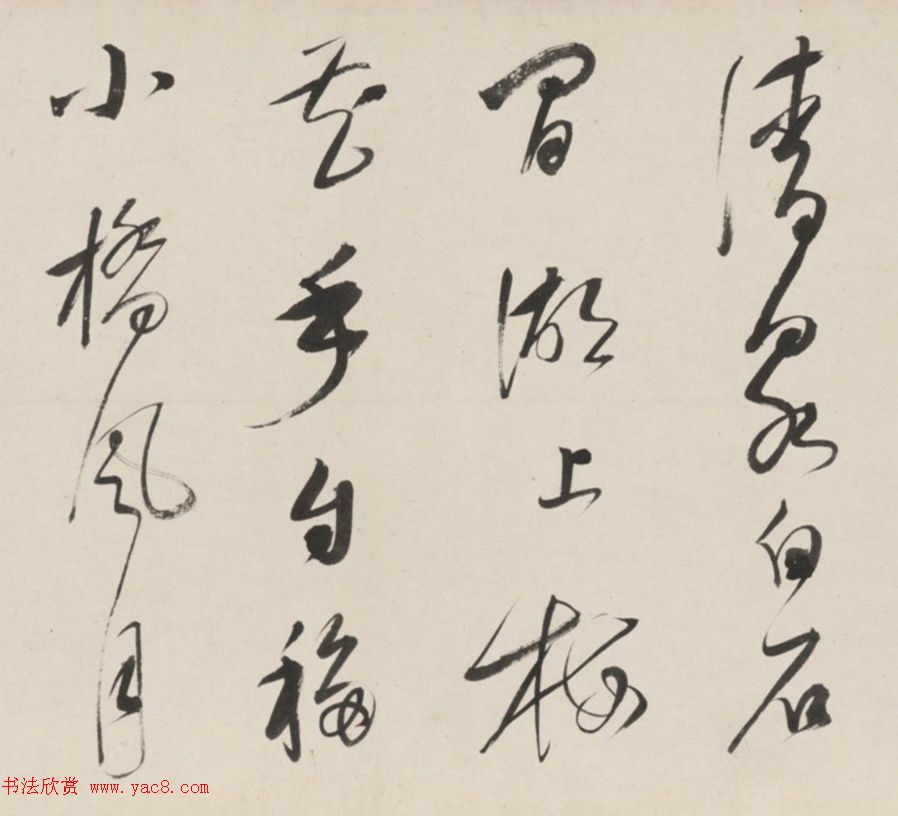 清泉白石
間湖上梅
花手自移
小橋風月
书法欣赏 www.yac8.com